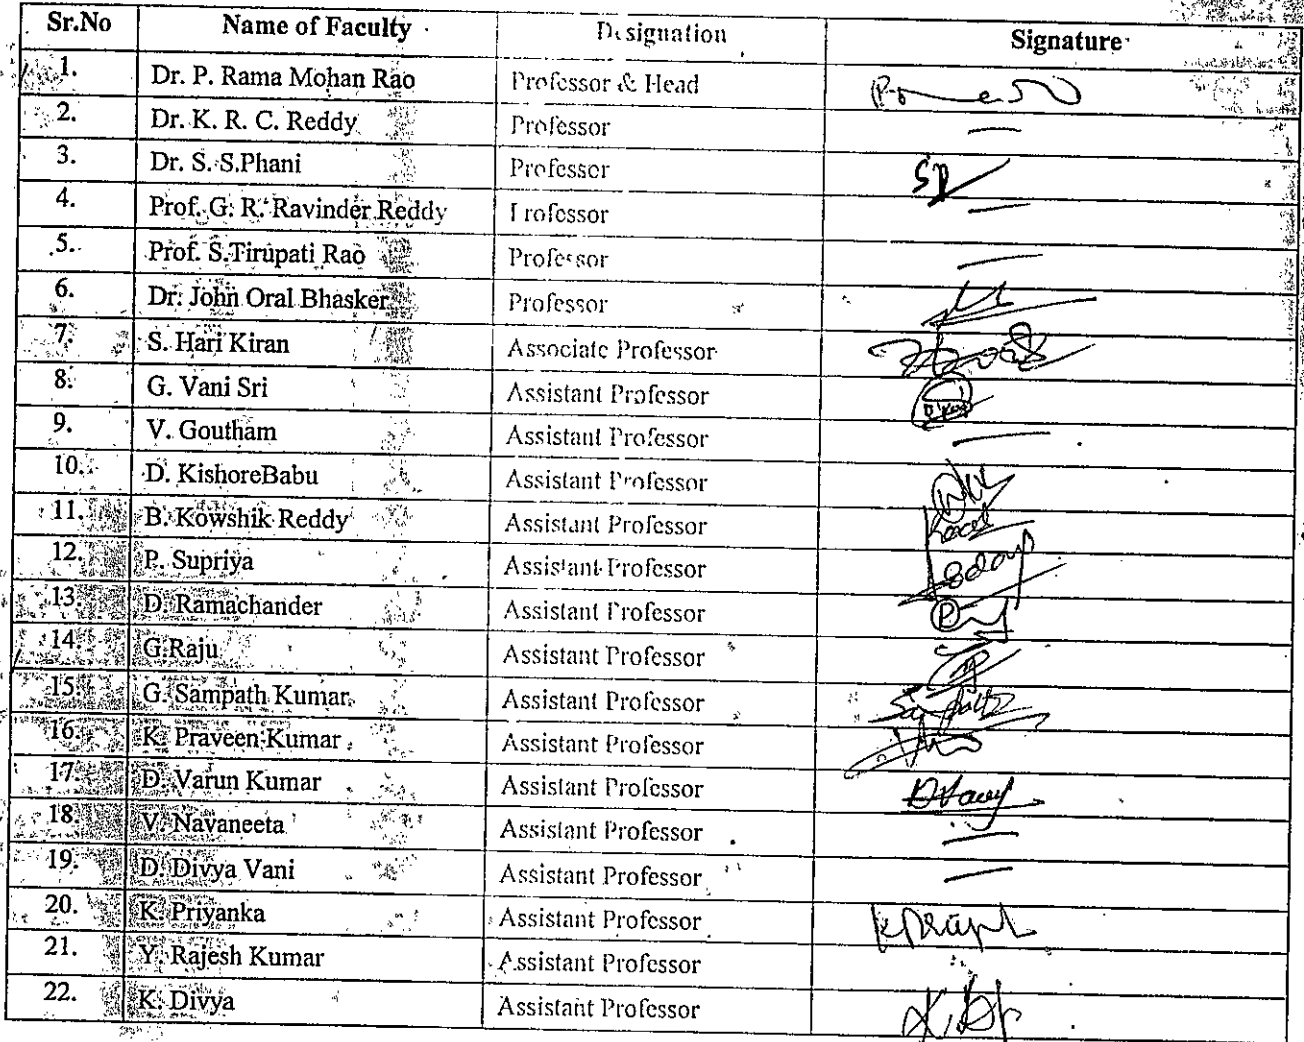 Sr.No Name of Faculty Designation Signature
1. Dr. P. Rama Mohan Rao Professor & Head
2. Dr. K. R. C. Reddy Professor —
3. Dr. S. S.Phani Professor SP
4. Prof. G. R. Ravinder Reddy Professor —
5. Prof. S.Tirupati Rao Professor —
6. Dr. John Oral Bhasker Professor
7. S. Hari Kiran Associate Professor
8. G. Vani Sri Assistant Professor
9. V. Goutham Assistant Professor —
10. D. KishoreBabu Assistant Professor
11. B. Kowshik Reddy Assistant Professor
12. P. Supriya Assistant Professor
13. D. Ramachander Assistant Professor
14. G.Raju Assistant Professor
15. G. Sampath Kumar Assistant Professor
16. K. Praveen Kumar Assistant Professor
17. D. Varun Kumar Assistant Professor
18. V. Navaneeta Assistant Professor —
19. D. Divya Vani Assistant Professor —
20. K. Priyanka Assistant Professor
21. Y. Rajesh Kumar Assistant Professor
22. K. Divya Assistant Professor